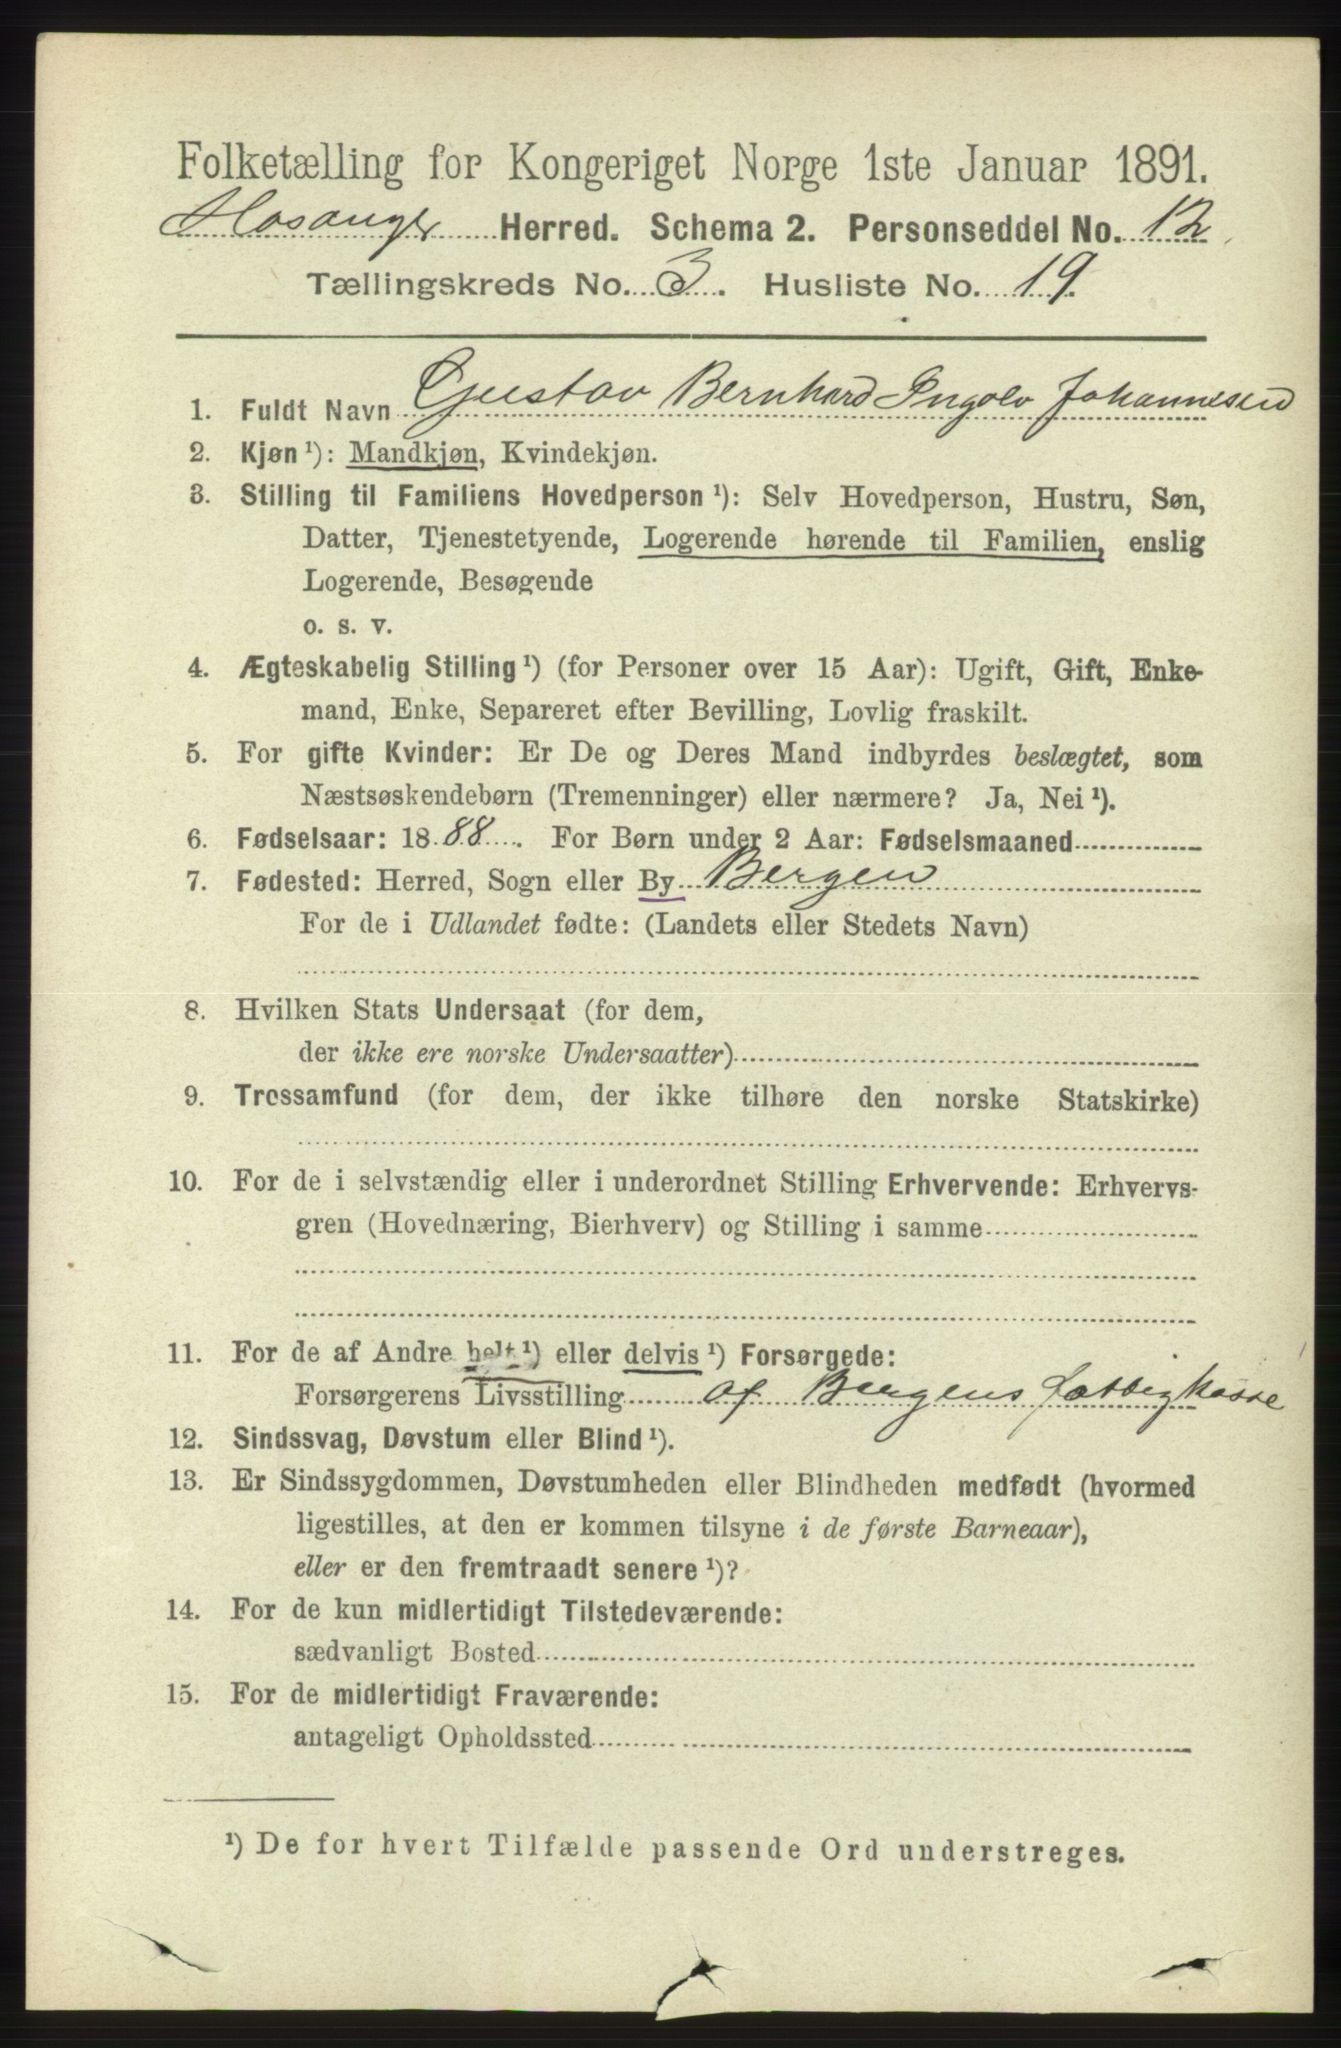 Folketælling for Kongeriget Norge 1ste Januar 1891.
Hosanger Herred. Schema 2. Personseddel No. 12
Tællingskreds No. 3. Husliste No. 19.
1. Fuldt Navn Gustav Bernhard Ingolv Johannesen
2. Kjøn ¹): Mandkjøn, Kvindekjøn.
3. Stilling til Familiens Hovedperson ¹): Selv Hovedperson, Hustru, Søn,
Datter, Tjenestetyende, Logerende hørende til Familien, enslig
Logerende, Besøgende
o. s. v.
4. Ægteskabelig Stilling ¹) (for Personer over 15 Aar): Ugift, Gift, Enke-
mand, Enke, Separeret efter Bevilling, Lovlig fraskilt.
5. For gifte Kvinder: Er De og Deres Mand indbyrdes beslægtet, som
Næstsøskendebørn (Tremenninger) eller nærmere? Ja, Nei ¹).
6. Fødselsaar: 1888. For Børn under 2 Aar: Fødselsmaaned
7. Fødested: Herred, Sogn eller By Bergen
For de i Udlandet fødte: (Landets eller Stedets Navn)
8. Hvilken Stats Undersaat (for dem,
der ikke ere norske Undersaatter)
9. Trossamfund (for dem, der ikke tilhøre den norske Statskirke)
10. For de i selvstændig eller i underordnet Stilling Erhvervende: Erhvervs-
gren (Hovednæring, Bierhverv) og Stilling i samme
11. For de af Andre helt ¹) eller delvis ¹) Forsørgede:
Forsørgerens Livsstilling af Bergens Fattigkasse
12. Sindssvag, Døvstum eller Blind ¹).
13. Er Sindssygdommen, Døvstumheden eller Blindheden medfødt (hvormed
ligestilles, at den er kommen tilsyne i de første Barneaar),
eller er den fremtraadt senere ¹)?
14. For de kun midlertidigt Tilstedeværende:
sædvanligt Bosted
15. For de midlertidigt Fraværende:
antageligt Opholdssted
¹) De for hvert Tilfælde passende Ord understreges.